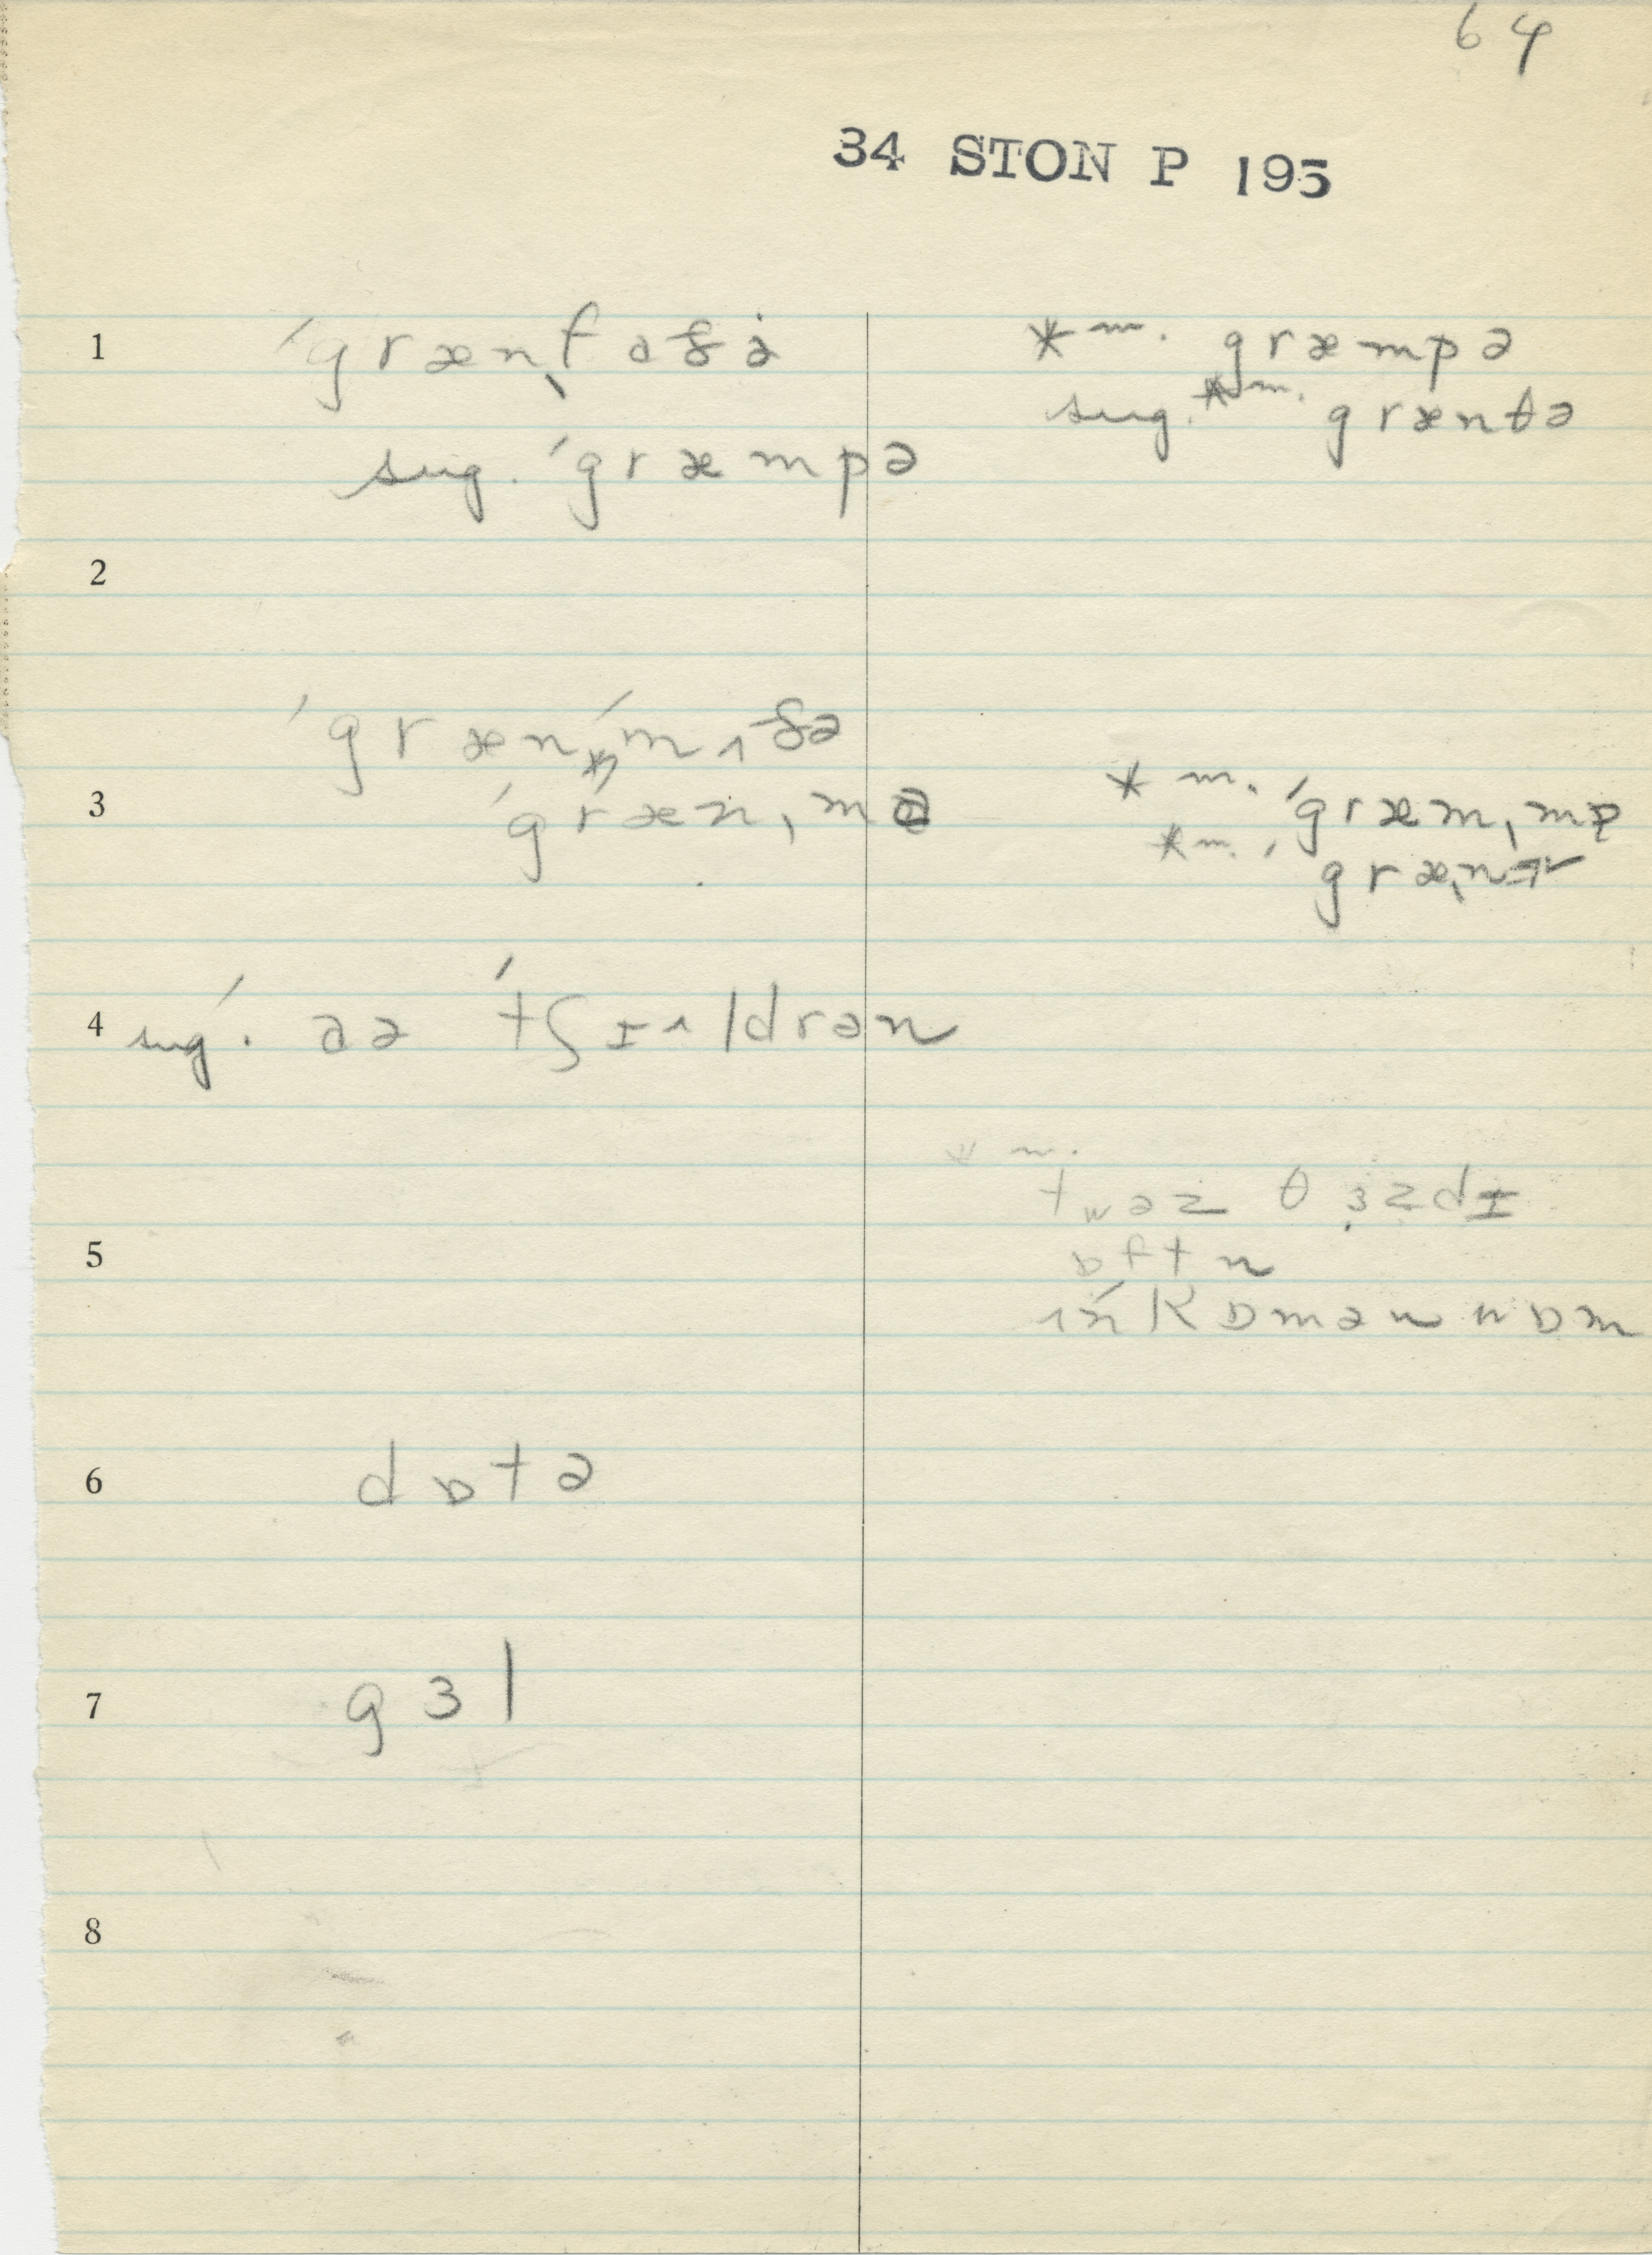 64
34 STON P 195
1 ˈgrænˌfɑðə *m. græmpə
sug. *m. grænθə
sug. ˈgræmpə
2
ˈgrænˌmʌðə
3 ˈgrænˌmə *m. ˈgræmˌmə
*m.
4 sug. ðə ˈtʃɪʌldrən
*m.
twəz θɜzdɪ
5 ɒftn
ɪn kɒmən
6 dɒtə
7 gɜl
8